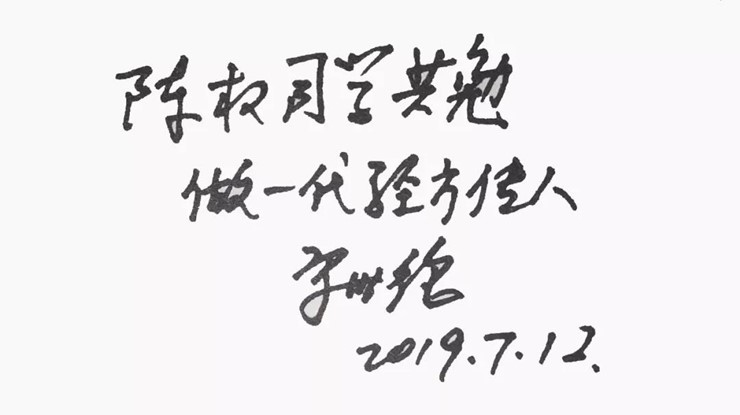 陈权同学共勉
做一代经方传人
李世绝
2019.7.12.